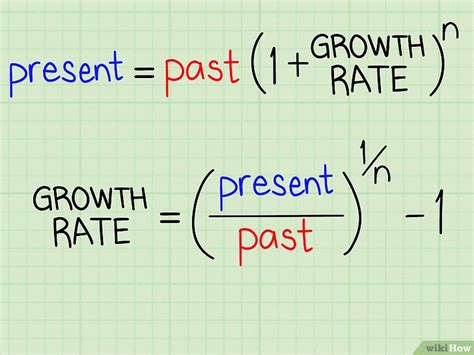 present = past (1 + GROWTH RATE)^n
GROWTH RATE = (present / past)^1/n - 1
wikiHow